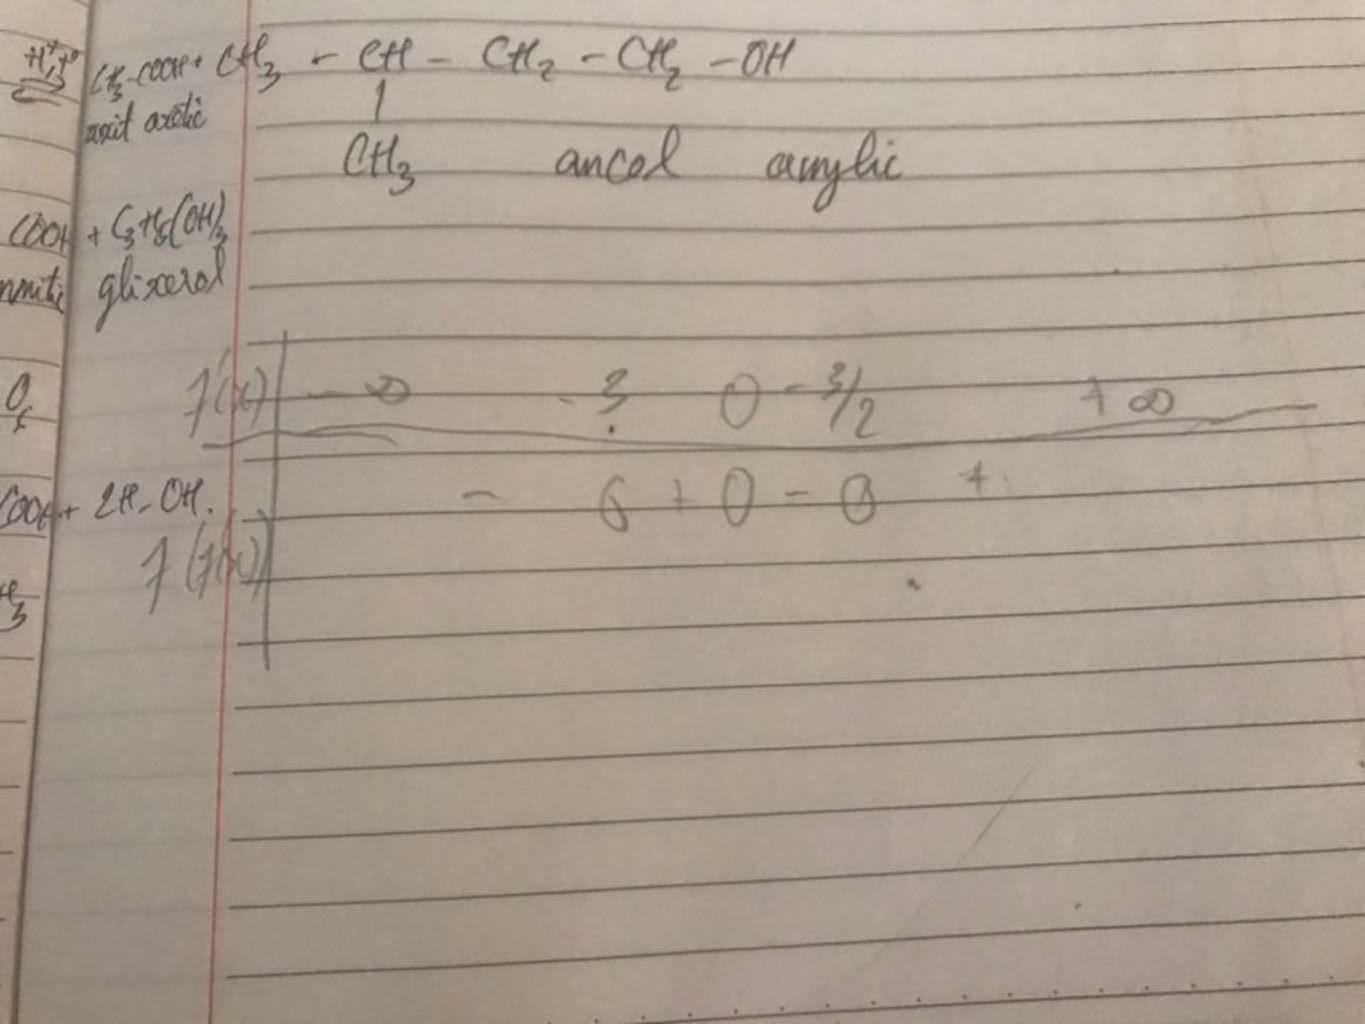 H⁺, t° CH₃-COOH + CH₃ - CH - CH₂ - CH₂ - OH
axit axetic
CH₃ ancol amylic
COOH + C₃H₅(OH)₃
glixerol
f'(x) -∞ -3 0 -3/2 +∞
- 0 + 0 - 0 +
COOH + 2H-OH.
f(f(x))